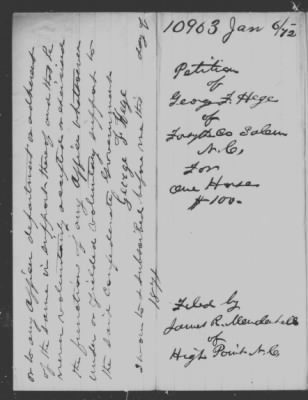 or to any office department or adherent
of the same in support thereof and that he
never voluntarily accepted or exercised
the functions of any office whatsoever
under or yielded voluntary support to
the said confederate Government
George F. Hege
Sworn to & subscribed before me this day of
1871
10903 Jan 6/72
Petition
of
George F. Hege
of
Forsythe Co Salem
N.C,
For
One Horse
$100-
Filed by
James R. Mendenhall
of
High Point N.C